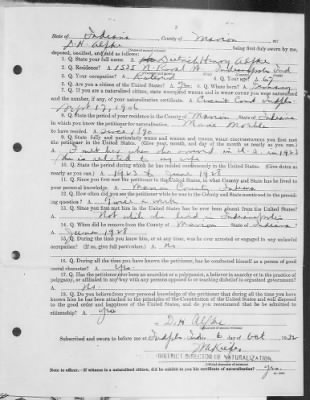 State of Indiana County of Marion ss:
D H Alpke being first duly sworn by me,
deposed, testified, and said as follows:
1. Q. State your full name A. Henry Alpke
2. Q. Residence? A. 1535 N Rural St Indianapolis Ind
3. Q. Your occupation? A. Retired Q. Age? A. 67
4. Q. Are you a citizen of the United States? A. Yes Q. Where born? A. Germany
5. Q. If you are a naturalized citizen, state when you were naturalized and
and the number, if any, of your naturalization certificate. A. Circuit Court Indpls
Sept 17, 1906
6. Q. State the period of your residence in the County of Marion State of Indiana
in which you know the petitioner for naturalization
to have resided. A. Since 1890
7. Q. State fully and particularly where and under what circumstances you first met
the petitioner in the United States. (Give year, month, and day of the month as nearly as you can.) A.
he is related to my wife
8. Q. State the period during which he has resided continuously in the United States. (Give dates as
nearly as you can.) A. 1923 to June 1928
9. Q. Since you first met the petitioner in the United States, in what State and County has he lived to
your personal knowledge? A. Marion County Indiana
10. Q. How often did you see the petitioner while he was in the County and State mentioned in the preceding
question? A.
11. Q. Since you first met him in the County has he ever been absent from the United States?
A. Not while he lived in Indianapolis
12. Q. When did he remove from the County of Marion State of Indiana
A. June 1928
13. Q. During the time you knew him, or at any time, was he ever arrested or engaged in any unlawful
occupation? (If so, give full particulars.) A. No
14. Q. During all the time you have known the petitioner, has he conducted himself as a person of good
moral character? A. Yes
15. Q. Has the petitioner ever been an anarchist or a polygamist, a believer in anarchy or in the practice of
polygamy, or affiliated in any way with any persons opposed to or teaching disbelief in organized government?
A. No
16. Q. Do you believe from your personal knowledge of the petitioner that during all the time you have
known him he has been attached to the principles of the Constitution of the United States and well disposed
to the good order and happiness of the United States, and do you recommend that he be admitted to
citizenship? A. Yes
D. H. Alpke
Subscribed and sworn to before me at Indpls Ind. 6 Oct 1932
DISTRICT DIRECTOR OF NATURALIZATION
Note.—If witness is a naturalized citizen, did he exhibit to you his certificate of naturalization? Yes.